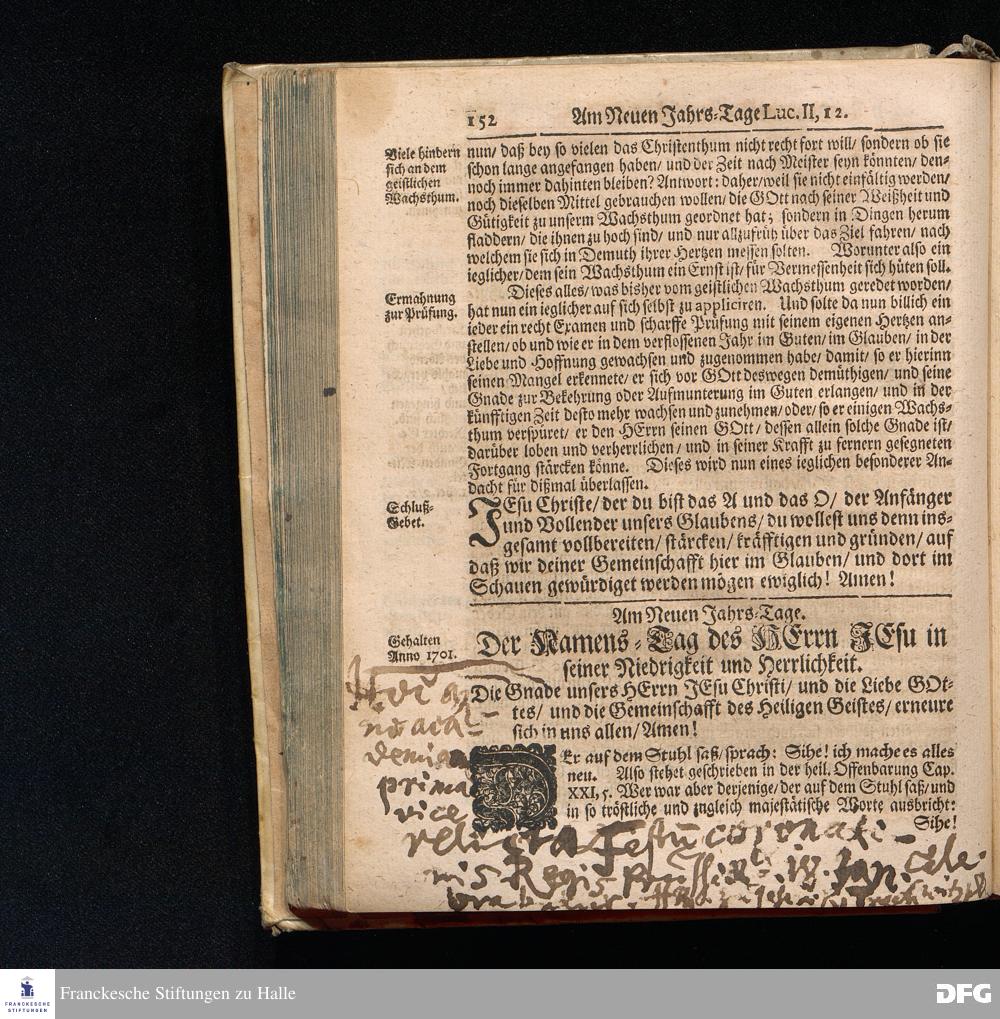 152 Am Neuen Jahrs-Tage Luc. II, 12.
Viele hindern
sich an dem
geistlichen
Wachsthum.
nun/ daß bey so vielen das Christenthum nicht recht fort will/ sondern ob sie
schon lange angefangen haben/ und der Zeit nach Meister seyn könnten/ den-
noch immer dahinten bleiben? Antwort: daher/ weil sie nicht einfältig werden/
noch dieselben Mittel gebrauchen wollen/ die GOtt nach seiner Weißheit und
Gütigkeit zu unserm Wachsthum geordnet hat; sondern in Dingen herum
fladdern/ die ihnen zu hoch sind/ und nur allzufrüh über das Ziel fahren/ nach
welchem sie sich in Demuth ihrer Hertzen messen solten. Worunter also ein
ieglicher/ dem sein Wachsthum ein Ernst ist/ für Vermessenheit sich hüten soll.
Ermahnung
zur Prüfung.
Dieses alles/ was bisher vom geistlichen Wachsthum geredet worden/
hat nun ein ieglicher auf sich selbst zu appliciren. Und solte da nun billich ein
ieder ein recht Examen und scharffe Prüfung mit seinem eigenen Hertzen an-
stellen/ ob und wie er in dem verflossenen Jahr im Guten/ im Glauben/ in der
Liebe und Hoffnung gewachsen und zugenommen habe/ damit/ so er hierinn
seinen Mangel erkennete/ er sich vor GOtt deswegen demüthigen/ und seine
Gnade zur Bekehrung oder Aufmunterung im Guten erlangen/ und in der
künfftigen Zeit desto mehr wachsen und zunehmen/ oder/ so er einigen Wachs-
thum verspüret/ er den HErrn seinen GOtt/ dessen allein solche Gnade ist/
darüber loben und verherrlichen/ und in seiner Krafft zu fernern gesegneten
Fortgang stärcken könne. Dieses wird nun eines ieglichen besonderer An-
dacht für dißmal überlassen.
Schluß-
Gebet.
JEsu Christe/ der du bist das A und das O/ der Anfänger
und Vollender unsers Glaubens/ du wollest uns denn ins-
gesamt vollbereiten/ stärcken/ kräfftigen und gründen/ auf
daß wir deiner Gemeinschafft hier im Glauben/ und dort im
Schauen gewürdiget werden mögen ewiglich! Amen!
Am Neuen Jahrs-Tage.
Gehalten
Anno 1701.
Der Namens-Tag des HErrn JEsu in
seiner Niedrigkeit und Herrlichkeit.
Die Gnade unsers HErrn JEsu Christi/ und die Liebe GOt-
tes/ und die Gemeinschafft des Heiligen Geistes/ erneure
sich in uns allen/ Amen!
DEr auf dem Stuhl saß/ sprach: Sihe! ich mache es alles
neu. Also stehet geschrieben in der heil. Offenbarung Cap.
XXI, 5. Wer war aber derjenige/ der auf dem Stuhl saß/ und
in so tröstliche und zugleich majestätische Worte ausbricht:
Sihe!
acad-
demia
prima
vice
relicta Festu coronatio-
nis Regis Jan. cele
Franckesche Stiftungen
Franckesche Stiftungen zu Halle
DFG